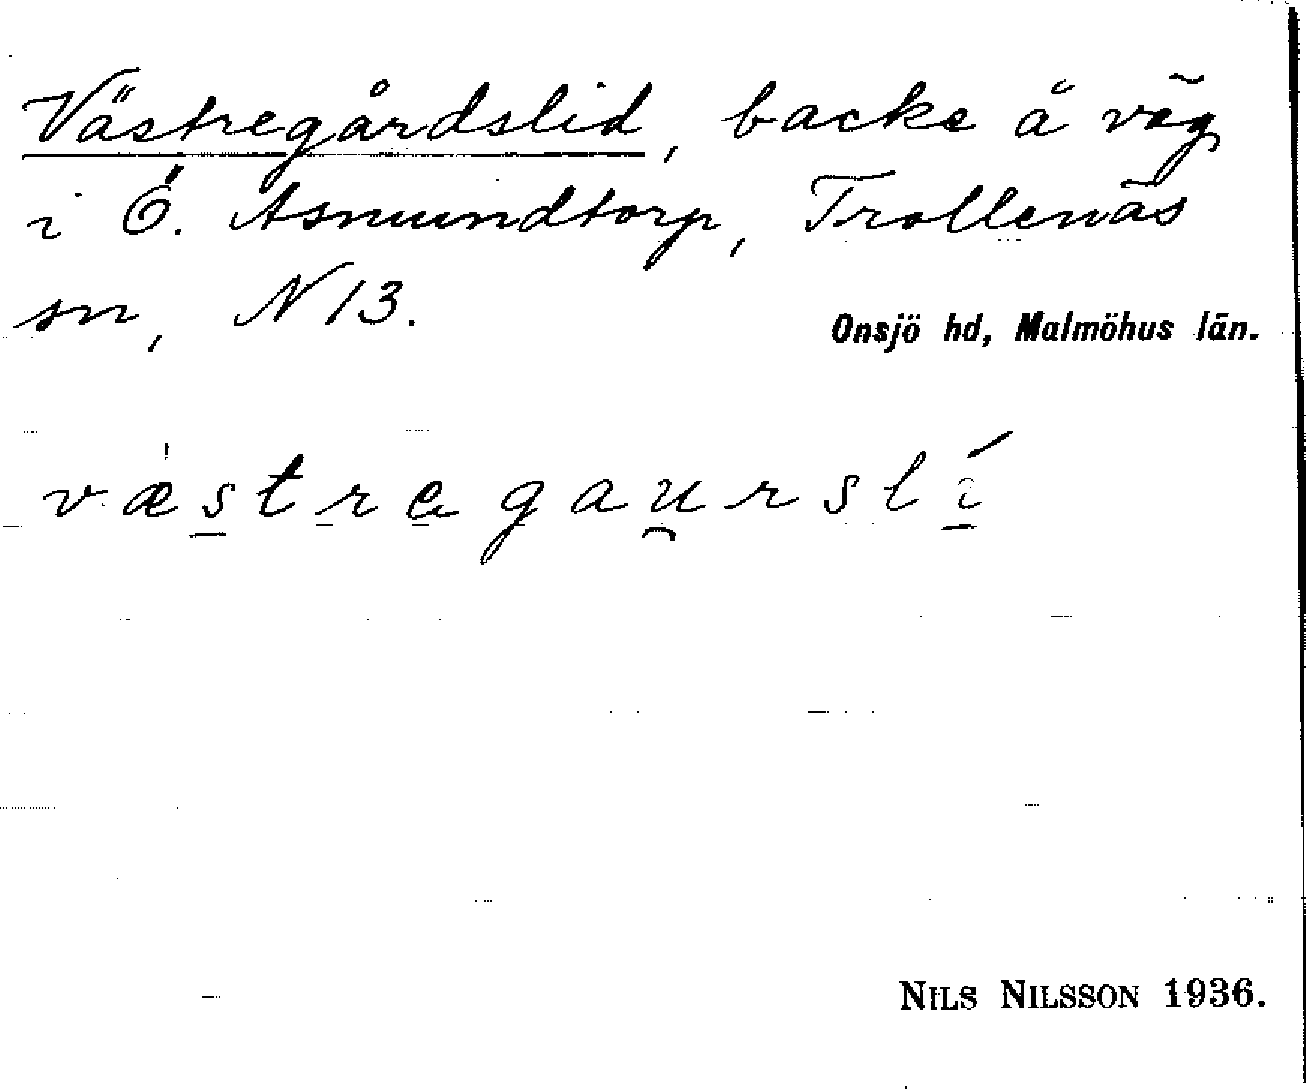 Västregårdslid, backe å väg
i Ö. Asmundtorp, Trollenäs
sn, N 13.
Onsjö hd, Malmöhus län.
væstregau̯rslí
NILS NILSSON 1936.